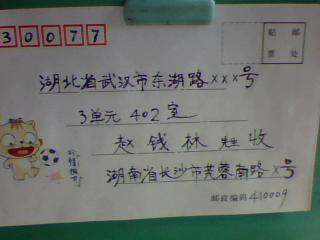 430077
贴 邮
票 处
湖北省武汉市东湖路×××号
3单元 402室
赵 钱 林 先生 收
湖南省长沙市芙蓉南路×号
邮政编码 410009